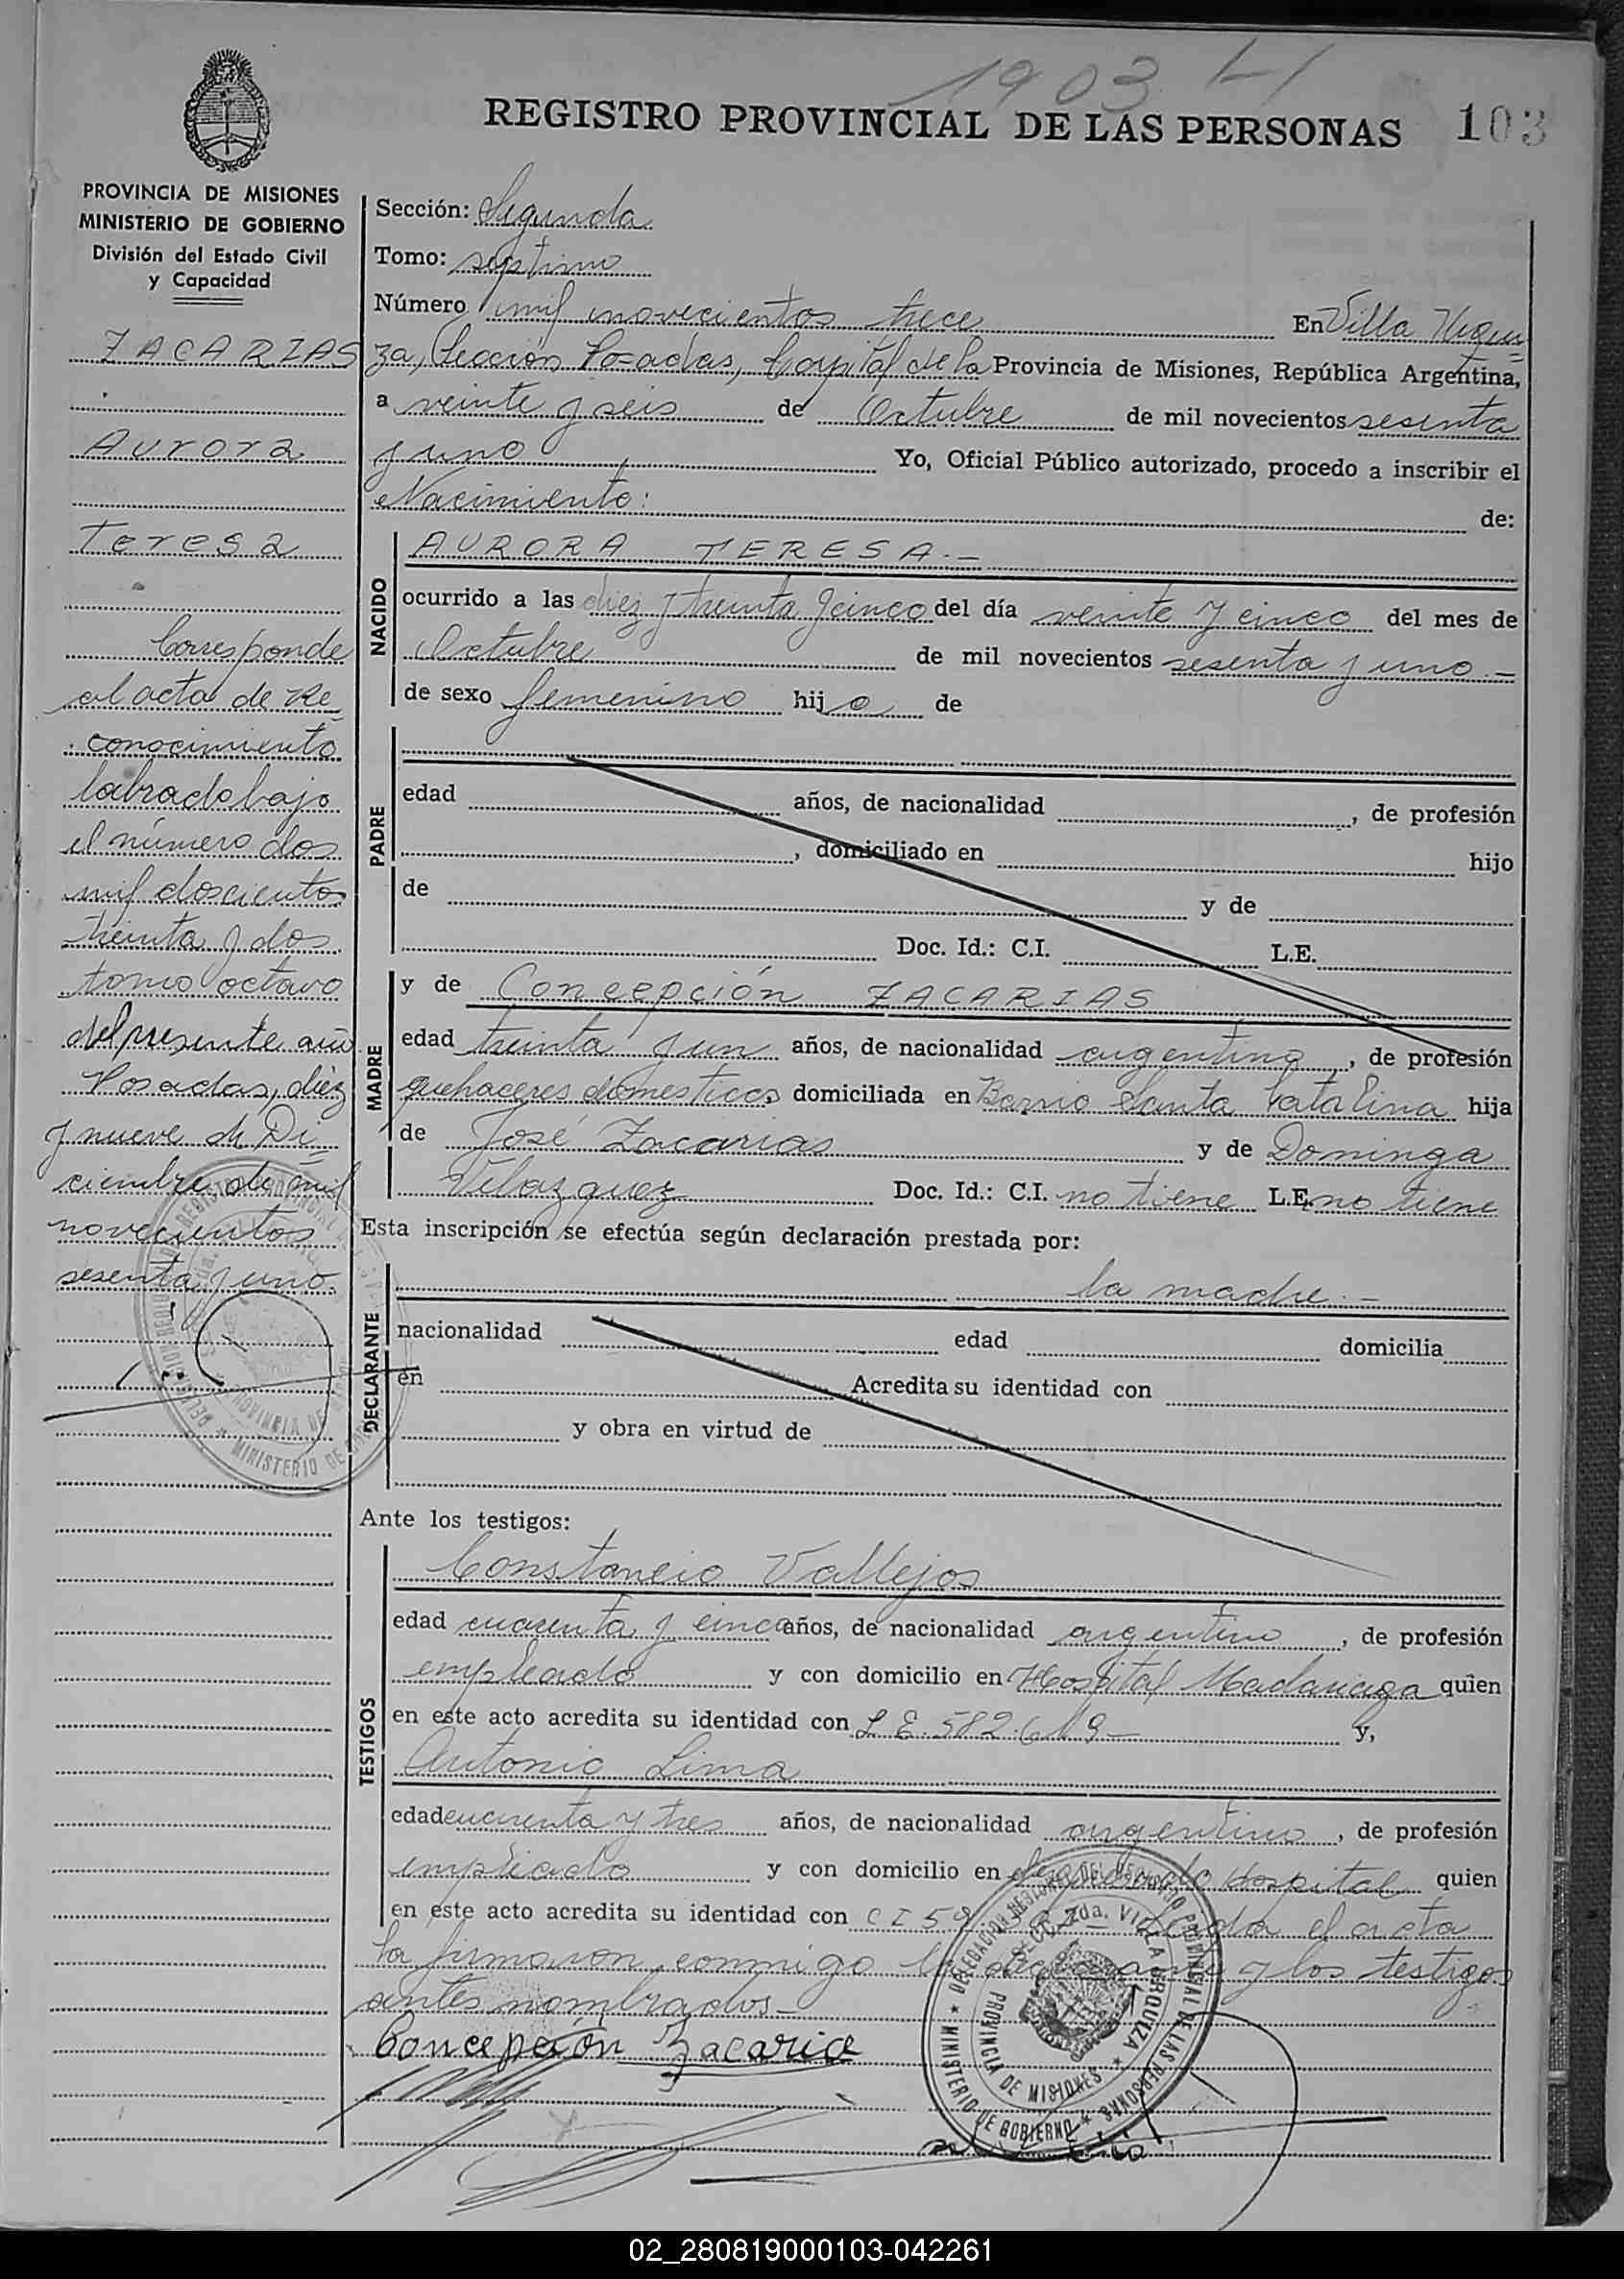 1903
REGISTRO PROVINCIAL DE LAS PERSONAS
103
PROVINCIA DE MISIONES
MINISTERIO DE GOBIERNO
División del Estado Civil
y Capacidad
ZACARIAS
Aurora
Teresa
Corresponde
al acta de Re
conocimiento
labrado bajo
el número dos
mil doscientos
treinta y dos
tomo octavo
del presente año
Posadas, diez
y nueve de Di
ciembre de mil
novecientos
sesenta y uno.
Sección: Segunda
Tomo: septimo
Número mil novecientos trece En Villa Urqui
za, Sección Posadas, Capital de la Provincia de Misiones, República Argentina,
a veinte y seis de Octubre de mil novecientos sesenta
y uno Yo, Oficial Público autorizado, procedo a inscribir el
Nacimiento: de:
NACIDO
AURORA TERESA.-
ocurrido a las diez y treinta y cinco del día veinte y cinco del mes de
Octubre de mil novecientos sesenta y uno.-
de sexo femenino hija de
PADRE
edad años, de nacionalidad , de profesión
, domiciliado en hijo
de y de
Doc. Id.: C.I. L.E.
MADRE
y de Concepción ZACARIAS
edad treinta y un años, de nacionalidad argentina, de profesión
quehaceres domesticos domiciliada en Barrio Santa Catalina hija
de José Zacarias y de Dominga
Velazquez Doc. Id.: C.I. no tiene L.E. no tiene
Esta inscripción se efectúa según declaración prestada por:
DECLARANTE
la madre.-
nacionalidad edad domicilia
en Acredita su identidad con
y obra en virtud de
Ante los testigos:
TESTIGOS
Constancio Vallejos
edad cuarenta y cinco años, de nacionalidad argentino, de profesión
empleado y con domicilio en Hospital Madariaga quien
en este acto acredita su identidad con L E. 582.619- y,
Antonio Lima
edad cuarenta y tres años, de nacionalidad argentino, de profesión
empleado y con domicilio en Hospital quien
en este acto acredita su identidad con C I el acta
la firmaron conmigo y los testigos
antes nombrados-
Concepción Zacaria
DELEGACION REGISTRO PROVINCIAL DE LAS PERSONAS
SECC. 2da. VILLA URQUIZA
PROVINCIA DE MISIONES
MINISTERIO DE GOBIERNO
02_280819000103-042261